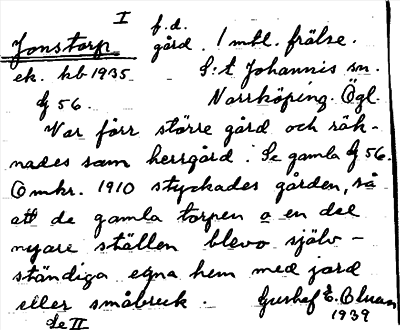 I
Jonstorp f.d. gård. 1 mtl. frälse.
ek. kb 1935 S:t Johannis sn.
G 56. Norrköping. Ögl.
Var förr större gård och räk-
nades som herrgård. Se gamla G 56.
Omkr. 1910 styckades gården, så
att de gamla torpen o en del
nyare ställen blevo själv-
ständiga egna hem med jord
eller småbruk. Gustaf E. Olsson
Se II 1939